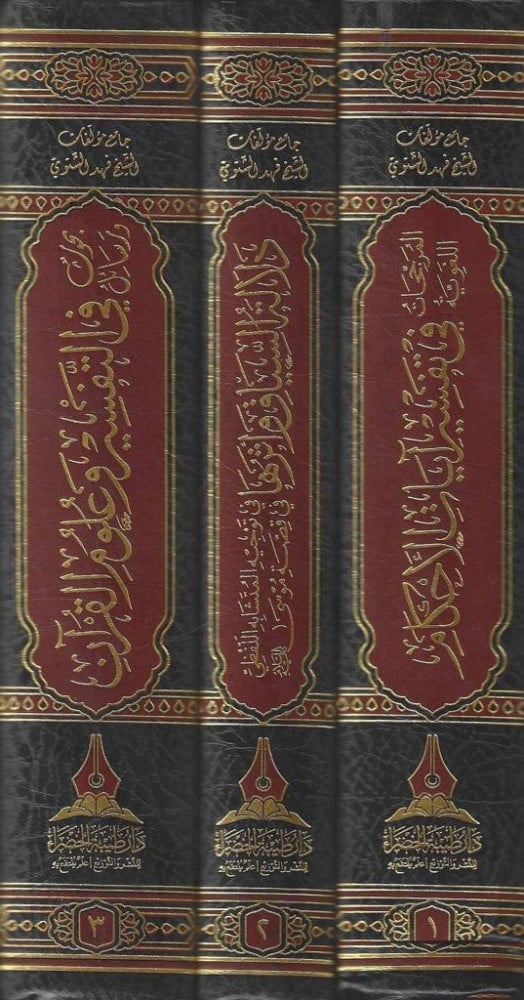 جامع مؤلفات
الشيخ فهد الشتوي
الترجيحات اللغوية
في تفسير آيات الأحكام
دار طيبة الخضراء
للنشر والتوزيع | علم ينتفع به
١
جامع مؤلفات
الشيخ فهد الشتوي
دلالة السياق وأثرها
في توجيه المتشابه اللفظي
في قصة موسى عليه السلام
دار طيبة الخضراء
للنشر والتوزيع | علم ينتفع به
٢
جامع مؤلفات
الشيخ فهد الشتوي
بحوث ورسائل
في التفسير وعلوم القرآن
دار طيبة الخضراء
للنشر والتوزيع | علم ينتفع به
٣